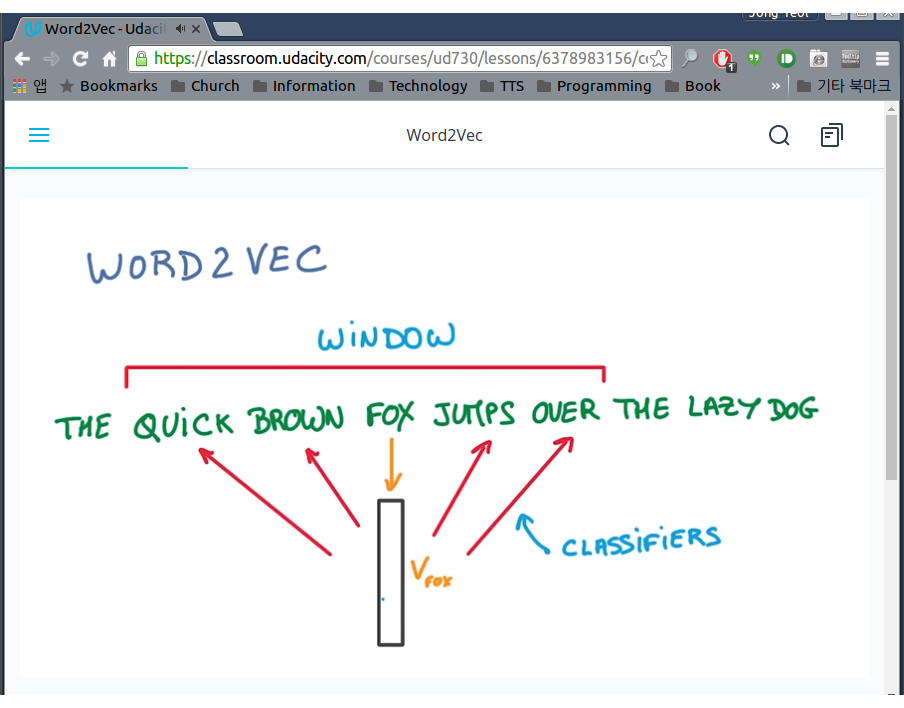 Word2Vec - Udaci
https://classroom.udacity.com/courses/ud730/lessons/6378983156/c
1
앱 Bookmarks Church Information Technology TTS Programming Book » 기타 북마크
Word2Vec
WORD2VEC
WINDOW
THE QUICK BROWN FOX JUMPS OVER THE LAZY DOG
CLASSIFIERS
V FOX